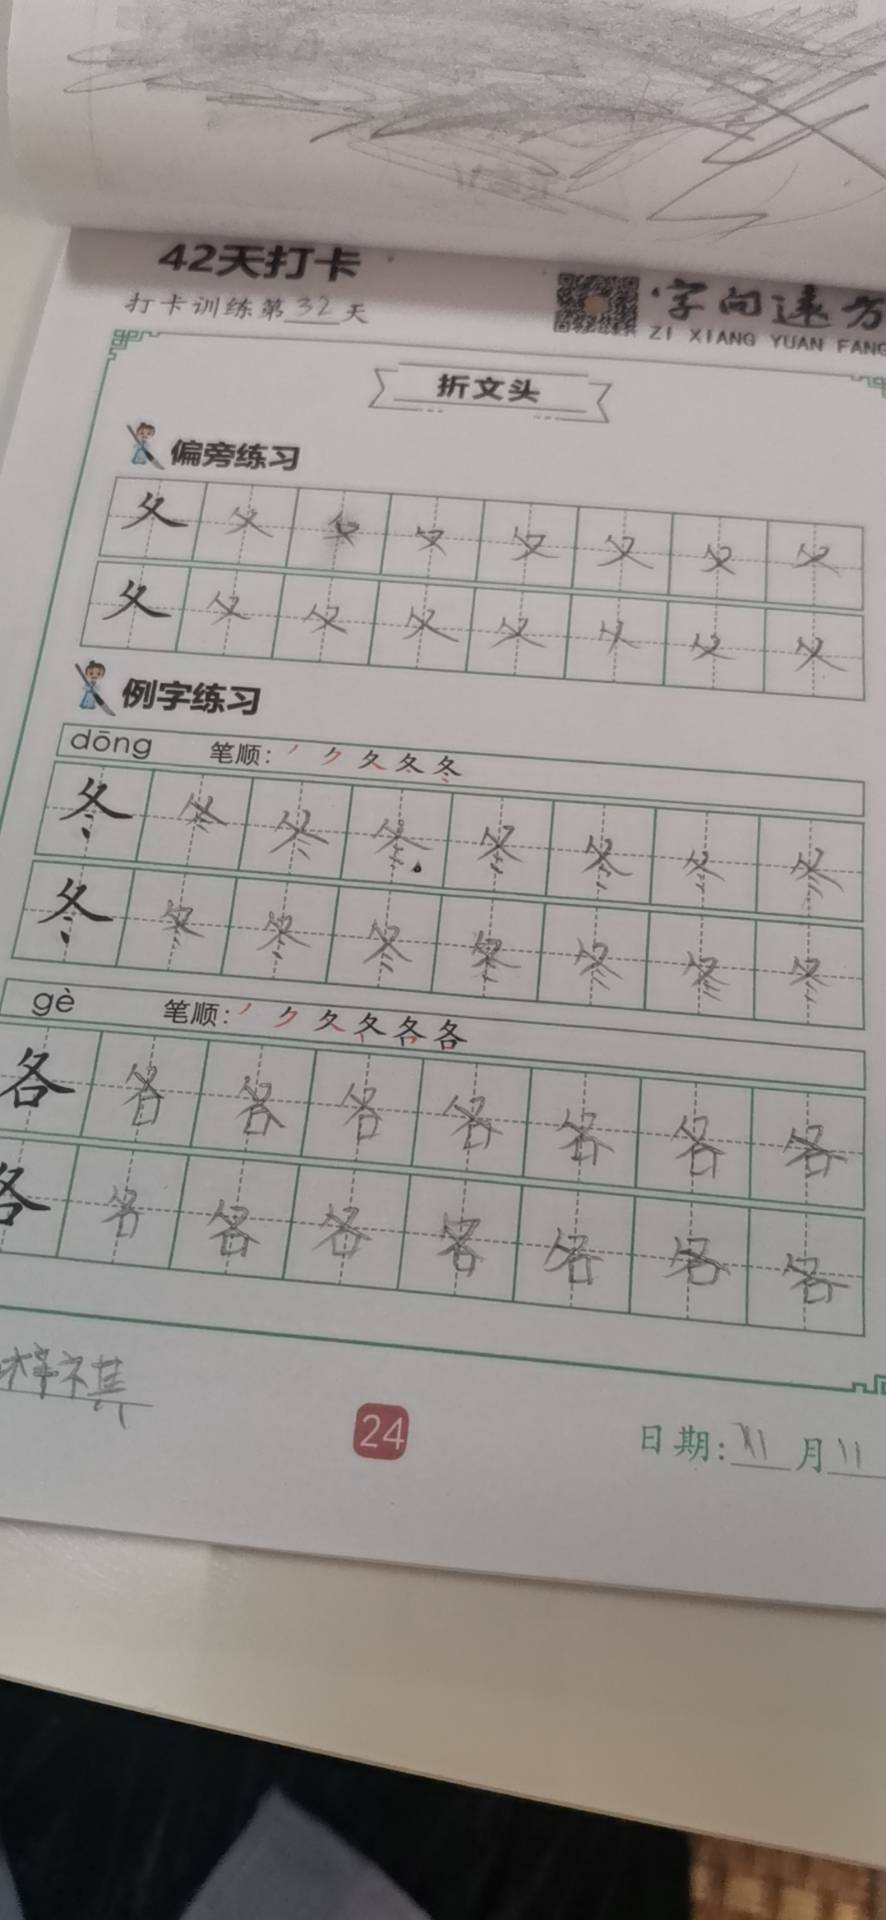 42天打卡
打卡训练第32天
字向远方
ZI XIANG YUAN FANG
折文头
偏旁练习
夂 夂 夂 夂 夂 夂 夂 夂
夂 夂 夂 夂 夂 夂 夂 夂
例字练习
dōng 笔顺: 丿 ク 夂 冬 冬
冬 冬 冬 冬 冬 冬 冬 冬
冬 冬 冬 冬 冬 冬 冬 冬
gè 笔顺: 丿 ク 夂 夂 各 各
各 各 各 各 各 各 各 各
各 各 各 各 各 各 各 各
梓祺
24
日期: 11 月 11